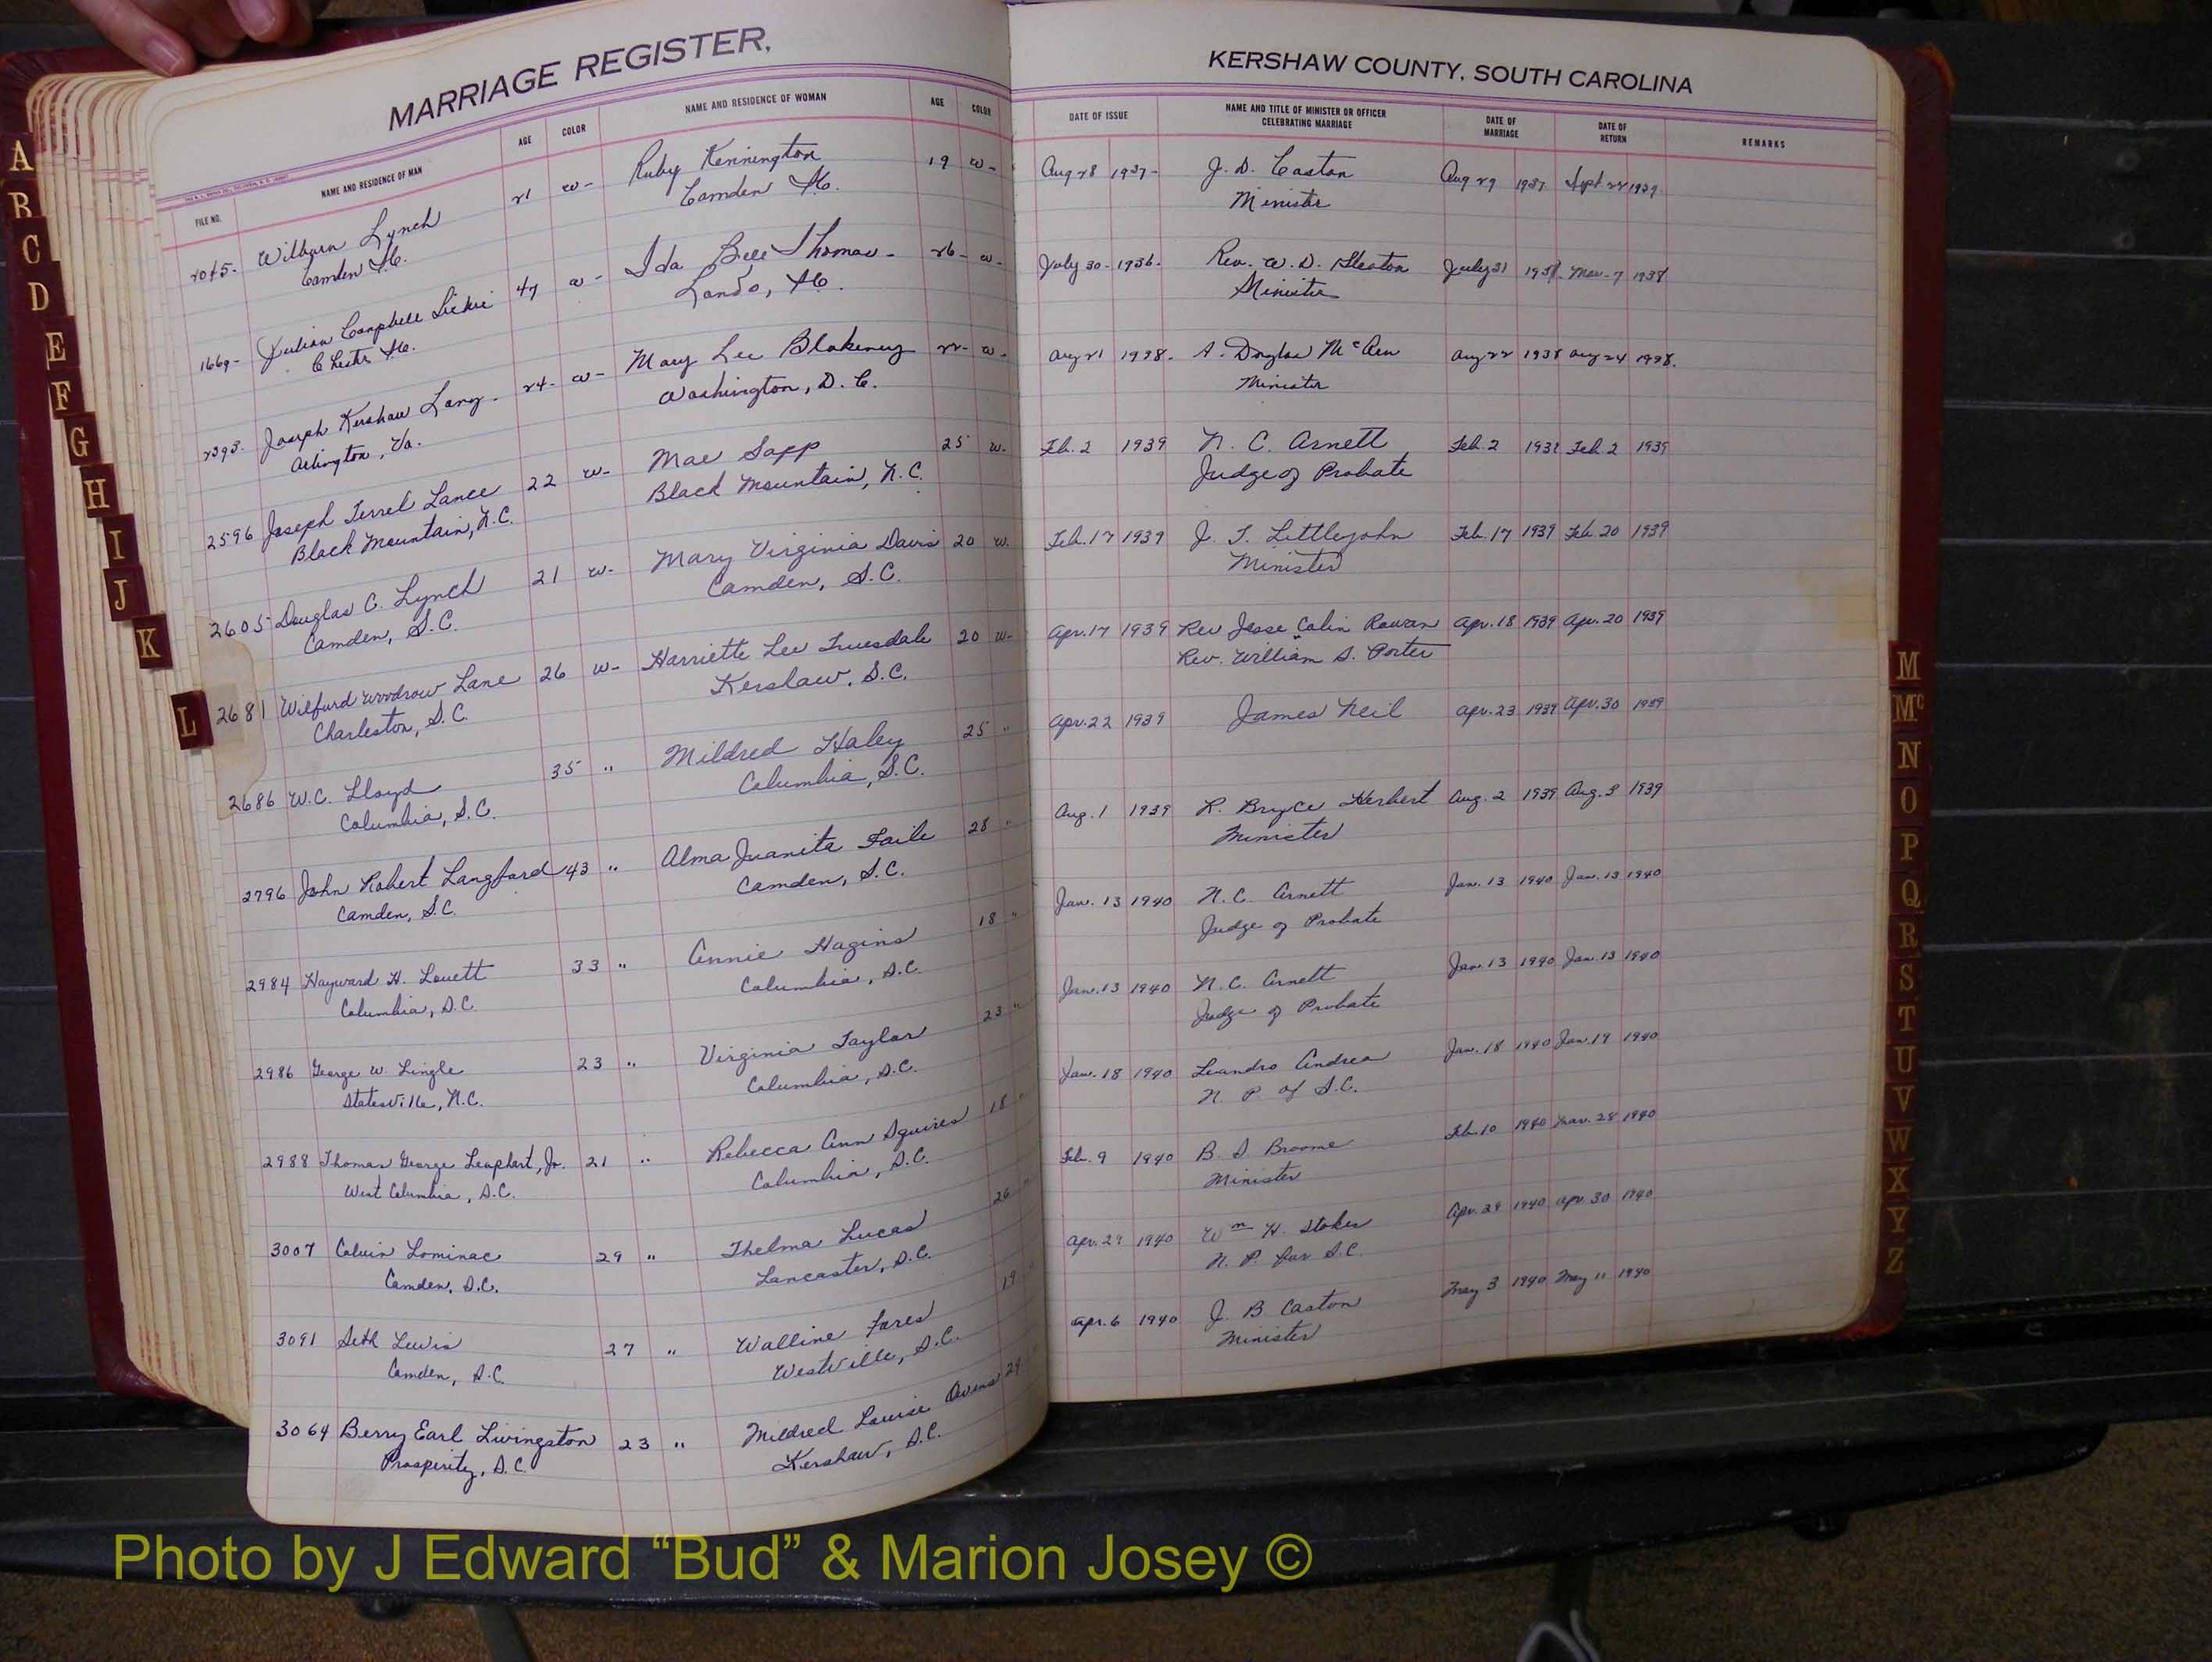 MARRIAGE REGISTER,
FILE NO. NAME AND RESIDENCE OF MAN AGE COLOR NAME AND RESIDENCE OF WOMAN AGE COLOR
Wilburn Lynch 21 w- Ruby Kennington 19 w-
Camden Camden
1669- Julian Campbell 47 w- Ida Bell Thomas- 26- w-
Chester Lando,
2393- Joseph Kershaw Lang- 24- w- Mary Lee Blakeney 22- w-
Arlington, Va. Washington, D. C.
2596 Joseph Terrel Lance 22 w- Mae Sapp 25 w.
Black Mountain, N.C. Black Mountain, N.C.
2605 Douglas C. Lynch 21 w- Mary Virginia Davis 20 w.
Camden, S.C. Camden, S.C.
2681 Wilfurd Woodrow Lane 26 w- Harriette Lee Truesdale 20 w-
Charleston, S.C. Kershaw, S.C.
2686 W.C. Lloyd 35 " Mildred Haley 25 "
Columbia, S.C. Columbia, S.C.
2796 John Robert Langford 43 " Alma Juanita Faile 28 "
Camden, S.C. Camden, S.C.
2984 Hayward H. Lovett 33 " Annie Hagins 18 "
Columbia, S.C. Columbia, S.C.
2986 George W. Lingle 23 " Virginia Taylor 23 "
Statesville, N.C. Columbia, S.C.
2988 Thomas George Leaphart, Jr. 21 " Rebecca Ann Squires 18 "
West Columbia, S.C. Columbia, S.C.
3007 Calvin Lominac 29 " Thelma Lucas 26 "
Camden, S.C. Lancaster, S.C.
3091 Seth Lewis 27 " Walline 19
Camden, S.C. Westville, S.C.
3064 Berry Earl Livingston 23 " Mildred Louise Owens 29
Prosperity, S.C. Kershaw, S.C.
KERSHAW COUNTY, SOUTH CAROLINA
DATE OF ISSUE NAME AND TITLE OF MINISTER OR OFFICER CELEBRATING MARRIAGE DATE OF MARRIAGE DATE OF RETURN REMARKS
Aug 28 1937- J. D. Caston Aug 29 1937
Minister
July 30- 1936- Rev. W. D. July 31 7
Minister
Aug 21 1938- A. Douglas Aug 22 1938 Aug 24 1938.
Minister
Feb. 2 1939 N. C. Arnett Feb. 2 1939 Feb. 2 1939
Judge of Probate
Feb. 17 1939 J. T. Littlejohn Feb. 17 1939 Feb. 20 1939
Minister
Apr. 17 1939 Rev Jesse Colin Rowan Apr. 18 1939 Apr. 20 1939
Rev. William S. Porter
Apr. 22 1939 James Neil Apr. 23 1939 Apr. 30 1939
Aug. 1 1939 R. Bryce Herbert Aug. 2 1939 Aug. 3 1939
Minister
Jan. 13 1940 N.C. Arnett Jan. 13 1940 Jan. 13 1940
Judge of Probate
Jan. 13 1940 N.C. Arnett Jan. 13 1940 Jan. 13 1940
Judge of Probate
Jan. 18 1940 Leandro Andrea Jan. 18 1940 Jan. 19 1940
N. P. of S.C.
Feb. 9 1940 B. D Broome Feb. 10 1940 Mar. 28 1940
Minister
Apr. 29 1940 Wm H. Stokes Apr. 29 1940 Apr. 30 1940
N. P. for S.C.
Apr. 6 1940 J. B Caston May 3 1940 May 11 1940
Minister
A
B
C
D
E
F
G
H
I
J
K
L
M
Mc
N
O
P
Q
R
S
T
U
V
W
X
Y
Z
Photo by J Edward “Bud” & Marion Josey ©